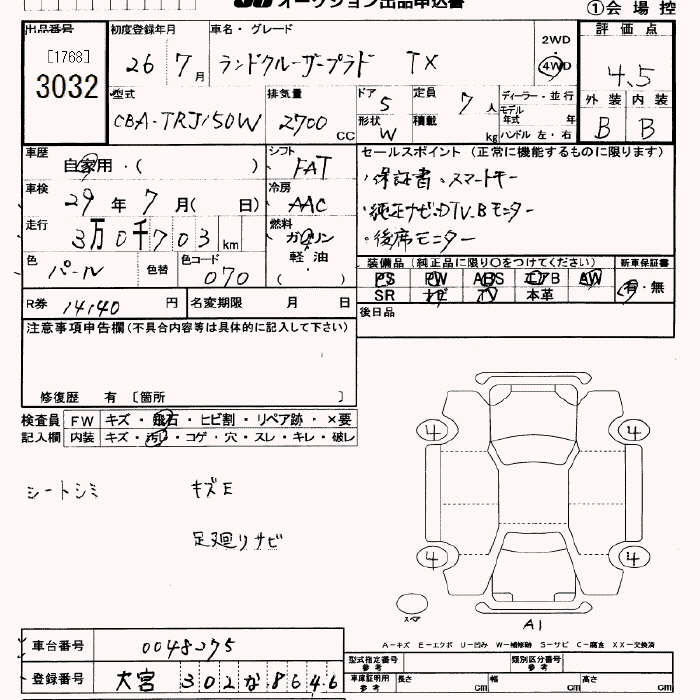 オークション出品申込書
①会場控
出品番号
[1768]
3032
初度登録年月
26 7 月
車名・グレード
ランドクルーザープラド TX
2WD
4WD
評価点
4.5
外装 内装
B B
型式
CBA-TRJ150W
排気量
2700 CC
ドア 5
形状 W
定員 7 人
積載 kg
ディーラー・並行
モデル年式 年
ハンドル 左・右
車歴
自家用・( )
シフト
FAT
車検
29 年 7 月( 日)
冷房
AAC
走行
3万0千703 km
燃料
ガソリン
軽油
( )
色
パール
色替
色コード
070
セールスポイント (正常に機能するものに限ります)
・保証書、スマートキー
・純正ナビ.DTV.Bモニター
・後席モニター
装備品 (純正品に限り○をつけてください)
新車保証書
PS PW ABS エアB AW
SR ナビ TV 本革
有・無
R券 14140 円
名変期限 月 日
後日品
注意事項申告欄(不具合内容等は具体的に記入して下さい)
修復歴 有 [箇所 ]
検査員 FW キズ・飛石・ヒビ割・リペア跡・×要
記入欄 内装 キズ・汚れ・コゲ・穴・スレ・キレ・破レ
シートシミ キズE
足廻りサビ
4 4
4 4
スペア
A1
A−キズ E−エクボ U−凹み W−補修跡 S−サビ C−腐食 XX−交換済
車台番号 0048275
登録番号 大宮 302 な 8646
型式指定番号 参考
類別区分番号 参考
車庫証明用 参考
長さ cm
幅 cm
高さ cm